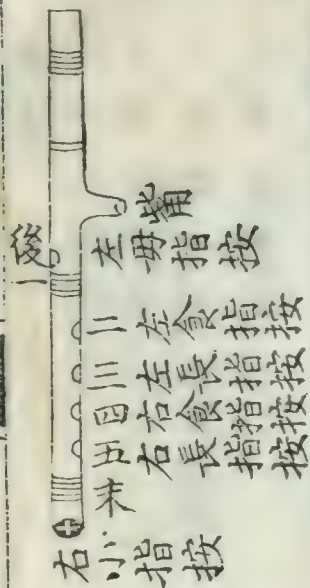 觜
後一
左毋指按
二左食指按
三左長指按
四右食指按
五右長指按
右小指按